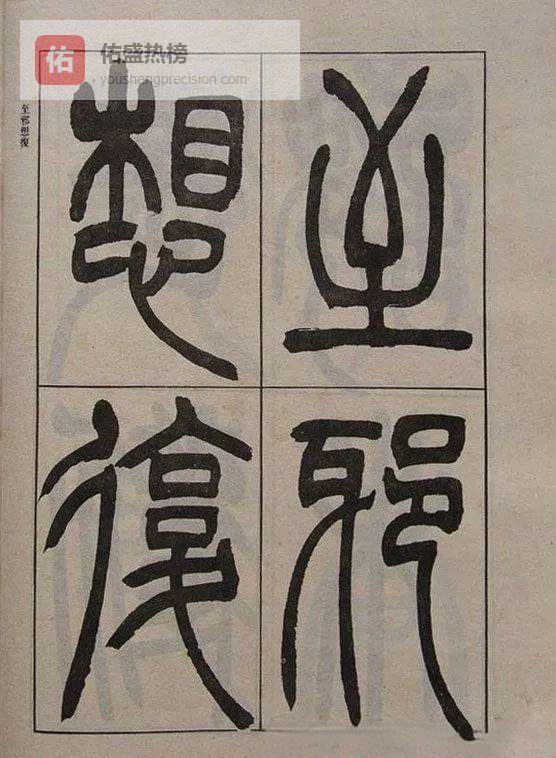 佑
佑盛热榜
youshengprecision.com
至邪想復
至邪
想復